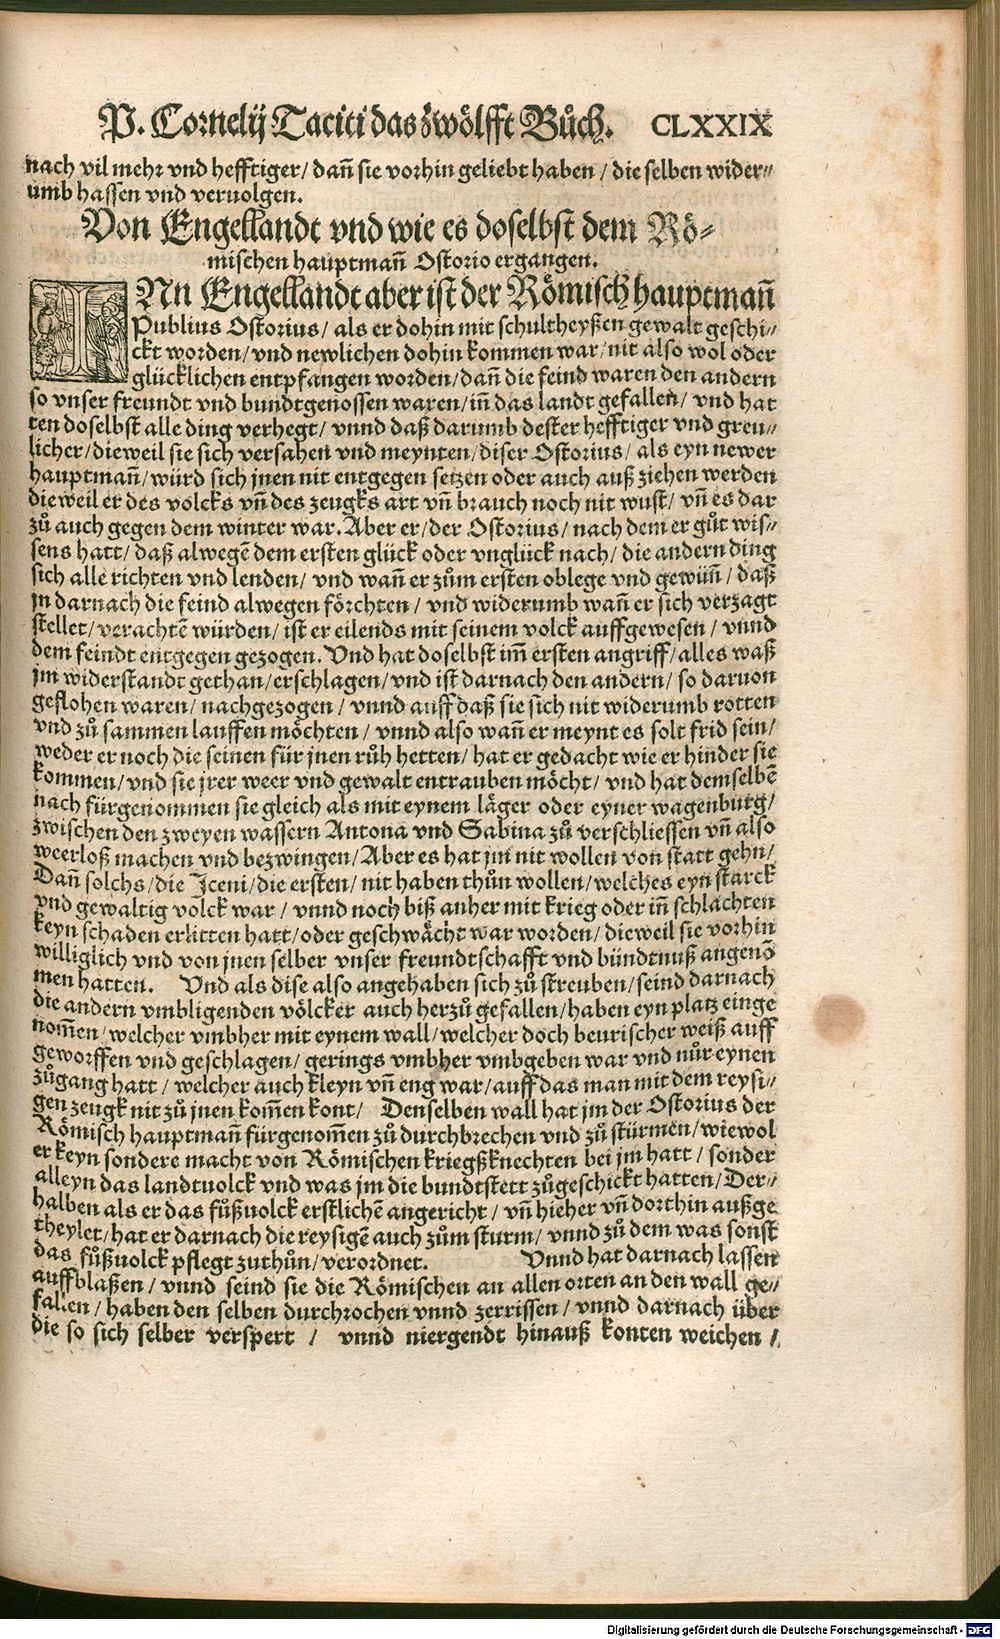 P. Cornelij Taciti das zwölfft Bůch. CLXXIX
nach vil mehr vnd hefftiger/ dañ sie vorhin geliebt haben / die selben wider⸗
umb hassen vnd veruolgen.
Von Engellandt vnd wie es doselbst dem Rö⸗
mischen hauptmañ Ostorio ergangen.
INn Engellandt aber ist der Römisch hauptmañ
Publius Ostorius/ als er dohin mit schultheyßen gewalt geschi⸗
ckt worden/ vnd newlichen dohin kommen war/ nit also wol oder
glücklichen entpfangen worden/ dañ die feind waren den andern
so vnser freundt vnd bundtgenossen waren/ iñ das landt gefallen/ vnd hat
ten doselbst alle ding verhegt/ vnnd daß darumb dester hefftiger vnd greu⸗
licher/ dieweil sie sich versahen vnd meynten/ diser Ostorius/ als eyn newer
hauptmañ/ würd sich jnen nit entgegen setzen oder auch auß ziehen werden
dieweil er des volcks vñ des zeugks art vñ brauch noch nit wust/ vñ es dar
zů auch gegen dem winter war. Aber er/ der Ostorius/ nach dem er gůt wis⸗
sens hatt/ daß alwegē dem ersten glück oder vnglück nach/ die andern ding
sich alle richten vnd lenden/ vnd wañ er zům ersten oblege vnd gewüñ/ daß
jn darnach die feind alwegen förchten / vnd widerumb wañ er sich verzagt
stellet/ verachtē würden/ ist er eilends mit seinem volck auffgewesen / vnnd
dem feindt entgegen gezogen. Vnd hat doselbst im̃ ersten angriff/ alles waß
jm widerstandt gethan/ erschlagen/ vnd ist darnach den andern/ so daruon
geflohen waren/ nachgezogen / vnnd auff daß sie sich nit widerumb rotten
vnd zů sammen lauffen möchten / vnnd also wañ er meynt es solt frid sein/
weder er noch die seinen für jnen růh hetten/ hat er gedacht wie er hinder sie
kommen/ vnd sie jrer weer vnd gewalt entrauben möcht/ vnd hat demselbē
nach fürgenommen sie gleich als mit eynem läger oder eyner wagenburg/
zwischen den zweyen wassern Antona vnd Sabina zů verschliessen vñ also
weerloß machen vnd bezwingen/ Aber es hat jm nit wollen von statt gehn/
Dañ solchs/ die Iceni/ die ersten/ nit haben thůn wollen/ welches eyn starck
vnd gewaltig völck war / vnnd noch biß anher mit krieg oder iñ schlachten
keyn schaden erlitten hatt/ oder geschwächt war worden/ dieweil sie vorhin
williglich vnd von jnen selber vnser freundtschafft vnd bündtnuß angenō
men hatten. Vnd als dise also angehaben sich zů streuben/ seind darnach
die andern vmbligenden völcker auch herzů gefallen/ haben eyn platz einge
nom̃en/ welcher vmbher mit eynem wall/ welcher doch beurischer weiß auff
geworffen vnd geschlagen/ gerings vmbher vmbgeben war vnd nůr eynen
zůgang hatt/ welcher auch kleyn vñ eng war/ auff das man mit dem reysi⸗
gen zeugk nit zů jnen kom̃en kont/ Denselben wall hat jm der Ostorius der
Römisch hauptmañ fürgenom̃en zů durchbrechen vnd zů stürmen/ wiewol
er keyn sondere macht von Römischen kriegßknechten bei jm hatt / sonder
alleyn das landtuolck vnd was jm die bundtstett zůgeschickt hatten/ Der⸗
halben als er das fůßuolck erstlichē angericht / vñ hieher vñ dorthin außge
theylet/ hat er darnach die reysigē auch zům sturm/ vnnd zů dem was sonst
das fůßuolck pflegt zuthůn/ verordnet. Vnnd hat darnach lassen
auffblaßen / vnnd seind sie die Römischen an allen orten an den wall ge⸗
fallen / haben den selben durchrochen vnnd zerrissen / vnnd darnach über
die so sich selber verspert / vnnd niergendt hinauß konten weichen /
Digitalisierung gefördert durch die Deutsche Forschungsgemeinschaft - DFG